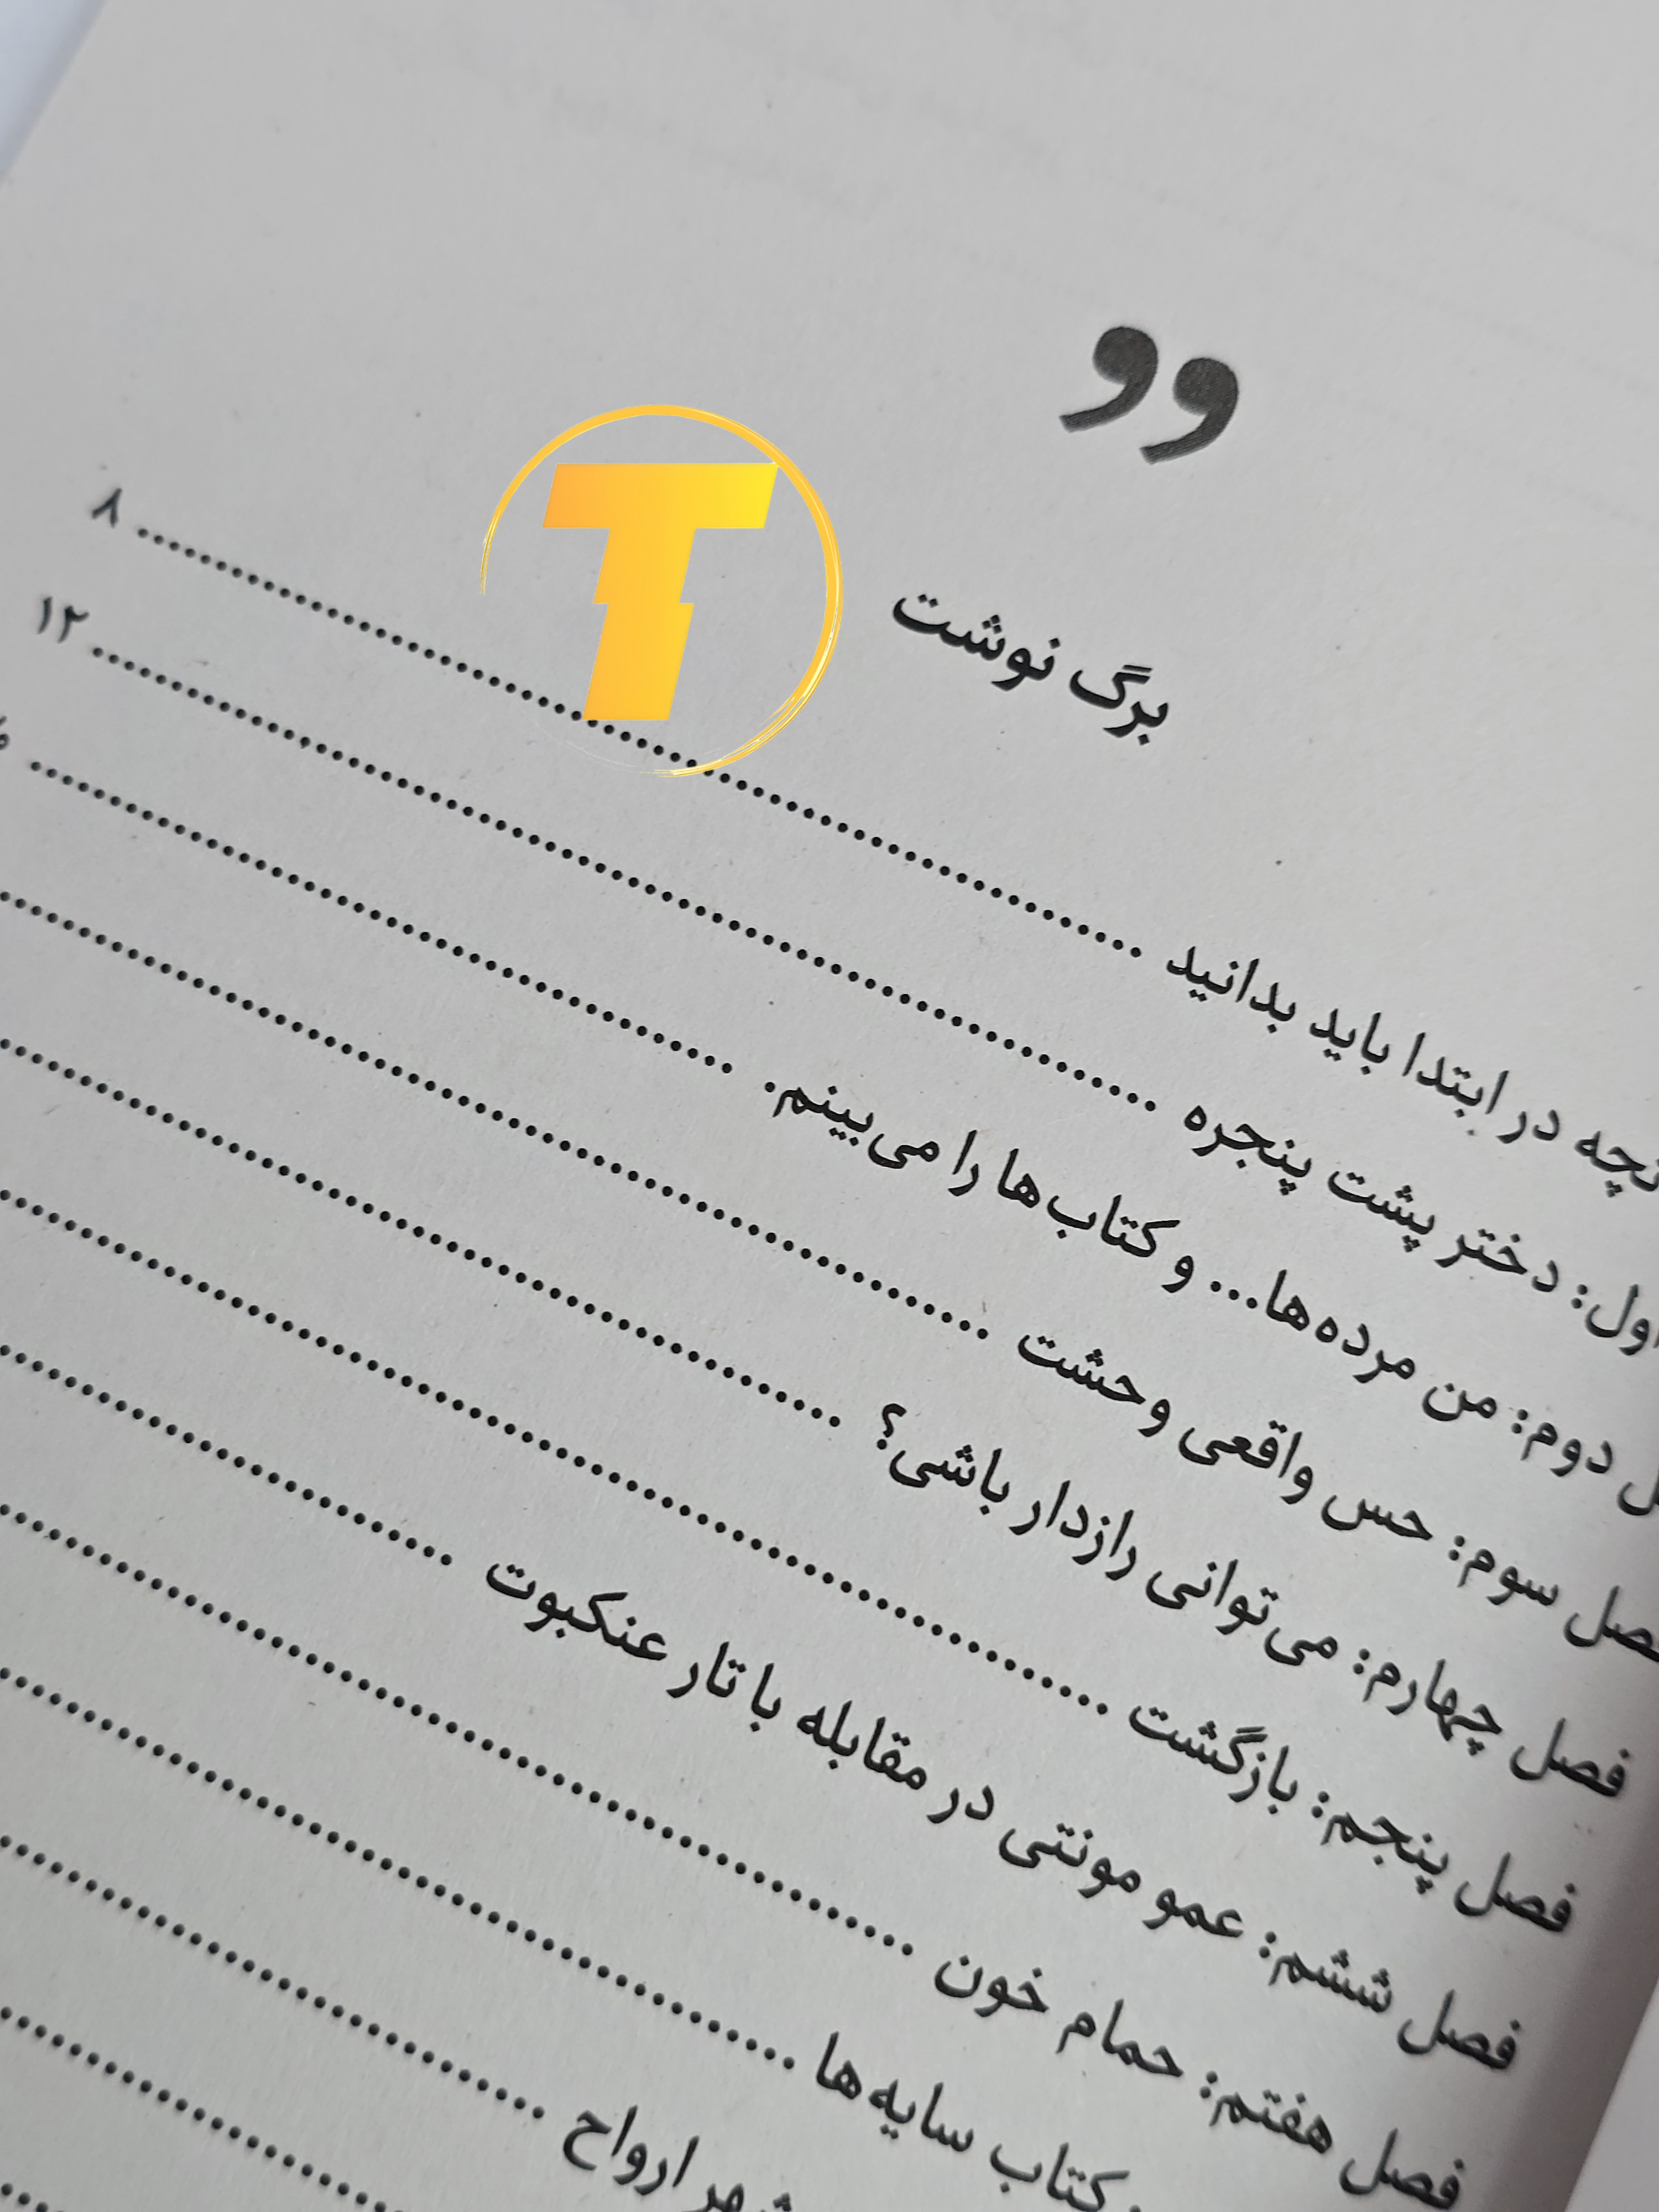 وو
T
برگ نوشت
نچه در ابتدا باید بدانید ........ ۸
اول: دختر پشت پنجره ........ ۱۲
ل دوم: من مرده‌ها... و کتاب‌ها را می‌بینم. ........
صل سوم: حس واقعی وحشت ........
فصل چهارم: می‌توانی رازدار باشی؟ ........
فصل پنجم: بازگشت ........
فصل ششم: عمو مونتی در مقابله با تار عنکبوت ........
فصل هفتم: حمام خون ........
کتاب سایه‌ها ........
شهر ارواح ........